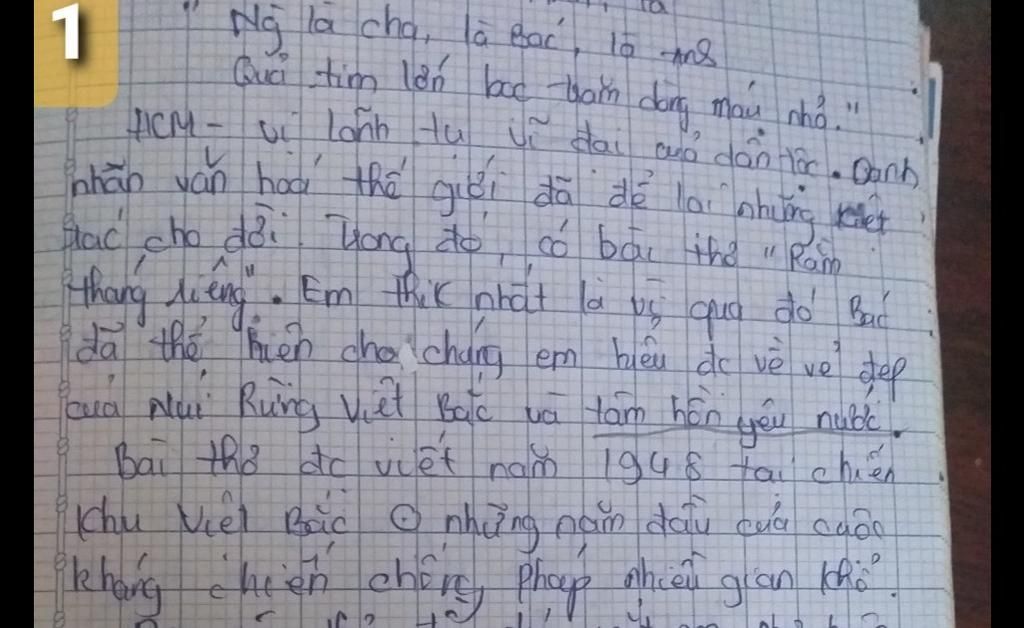 1
" Ng là cha, là Bác, là Anh
Quả tim lớn bọc trăm dòng máu nhỏ."
HCM - vị lãnh tụ vĩ đại của dân tộc. Danh
nhân văn hoá thế giới đã để lại những kiệt
tác cho đời. Trong đó, có bài thơ "Rằm
tháng Giêng". Em thík nhất là vì qua đó Bác
đã thể hiện cho chúng em hiểu đc về vẻ đẹp
của Núi Rừng Việt Bắc và tâm hồn yêu nước.
Bài thơ đc viết năm 1948 tại chiến
khu Việt Bắc ở những năm đầu của cuộc
kháng chiến chống Pháp nhiều gian khổ.